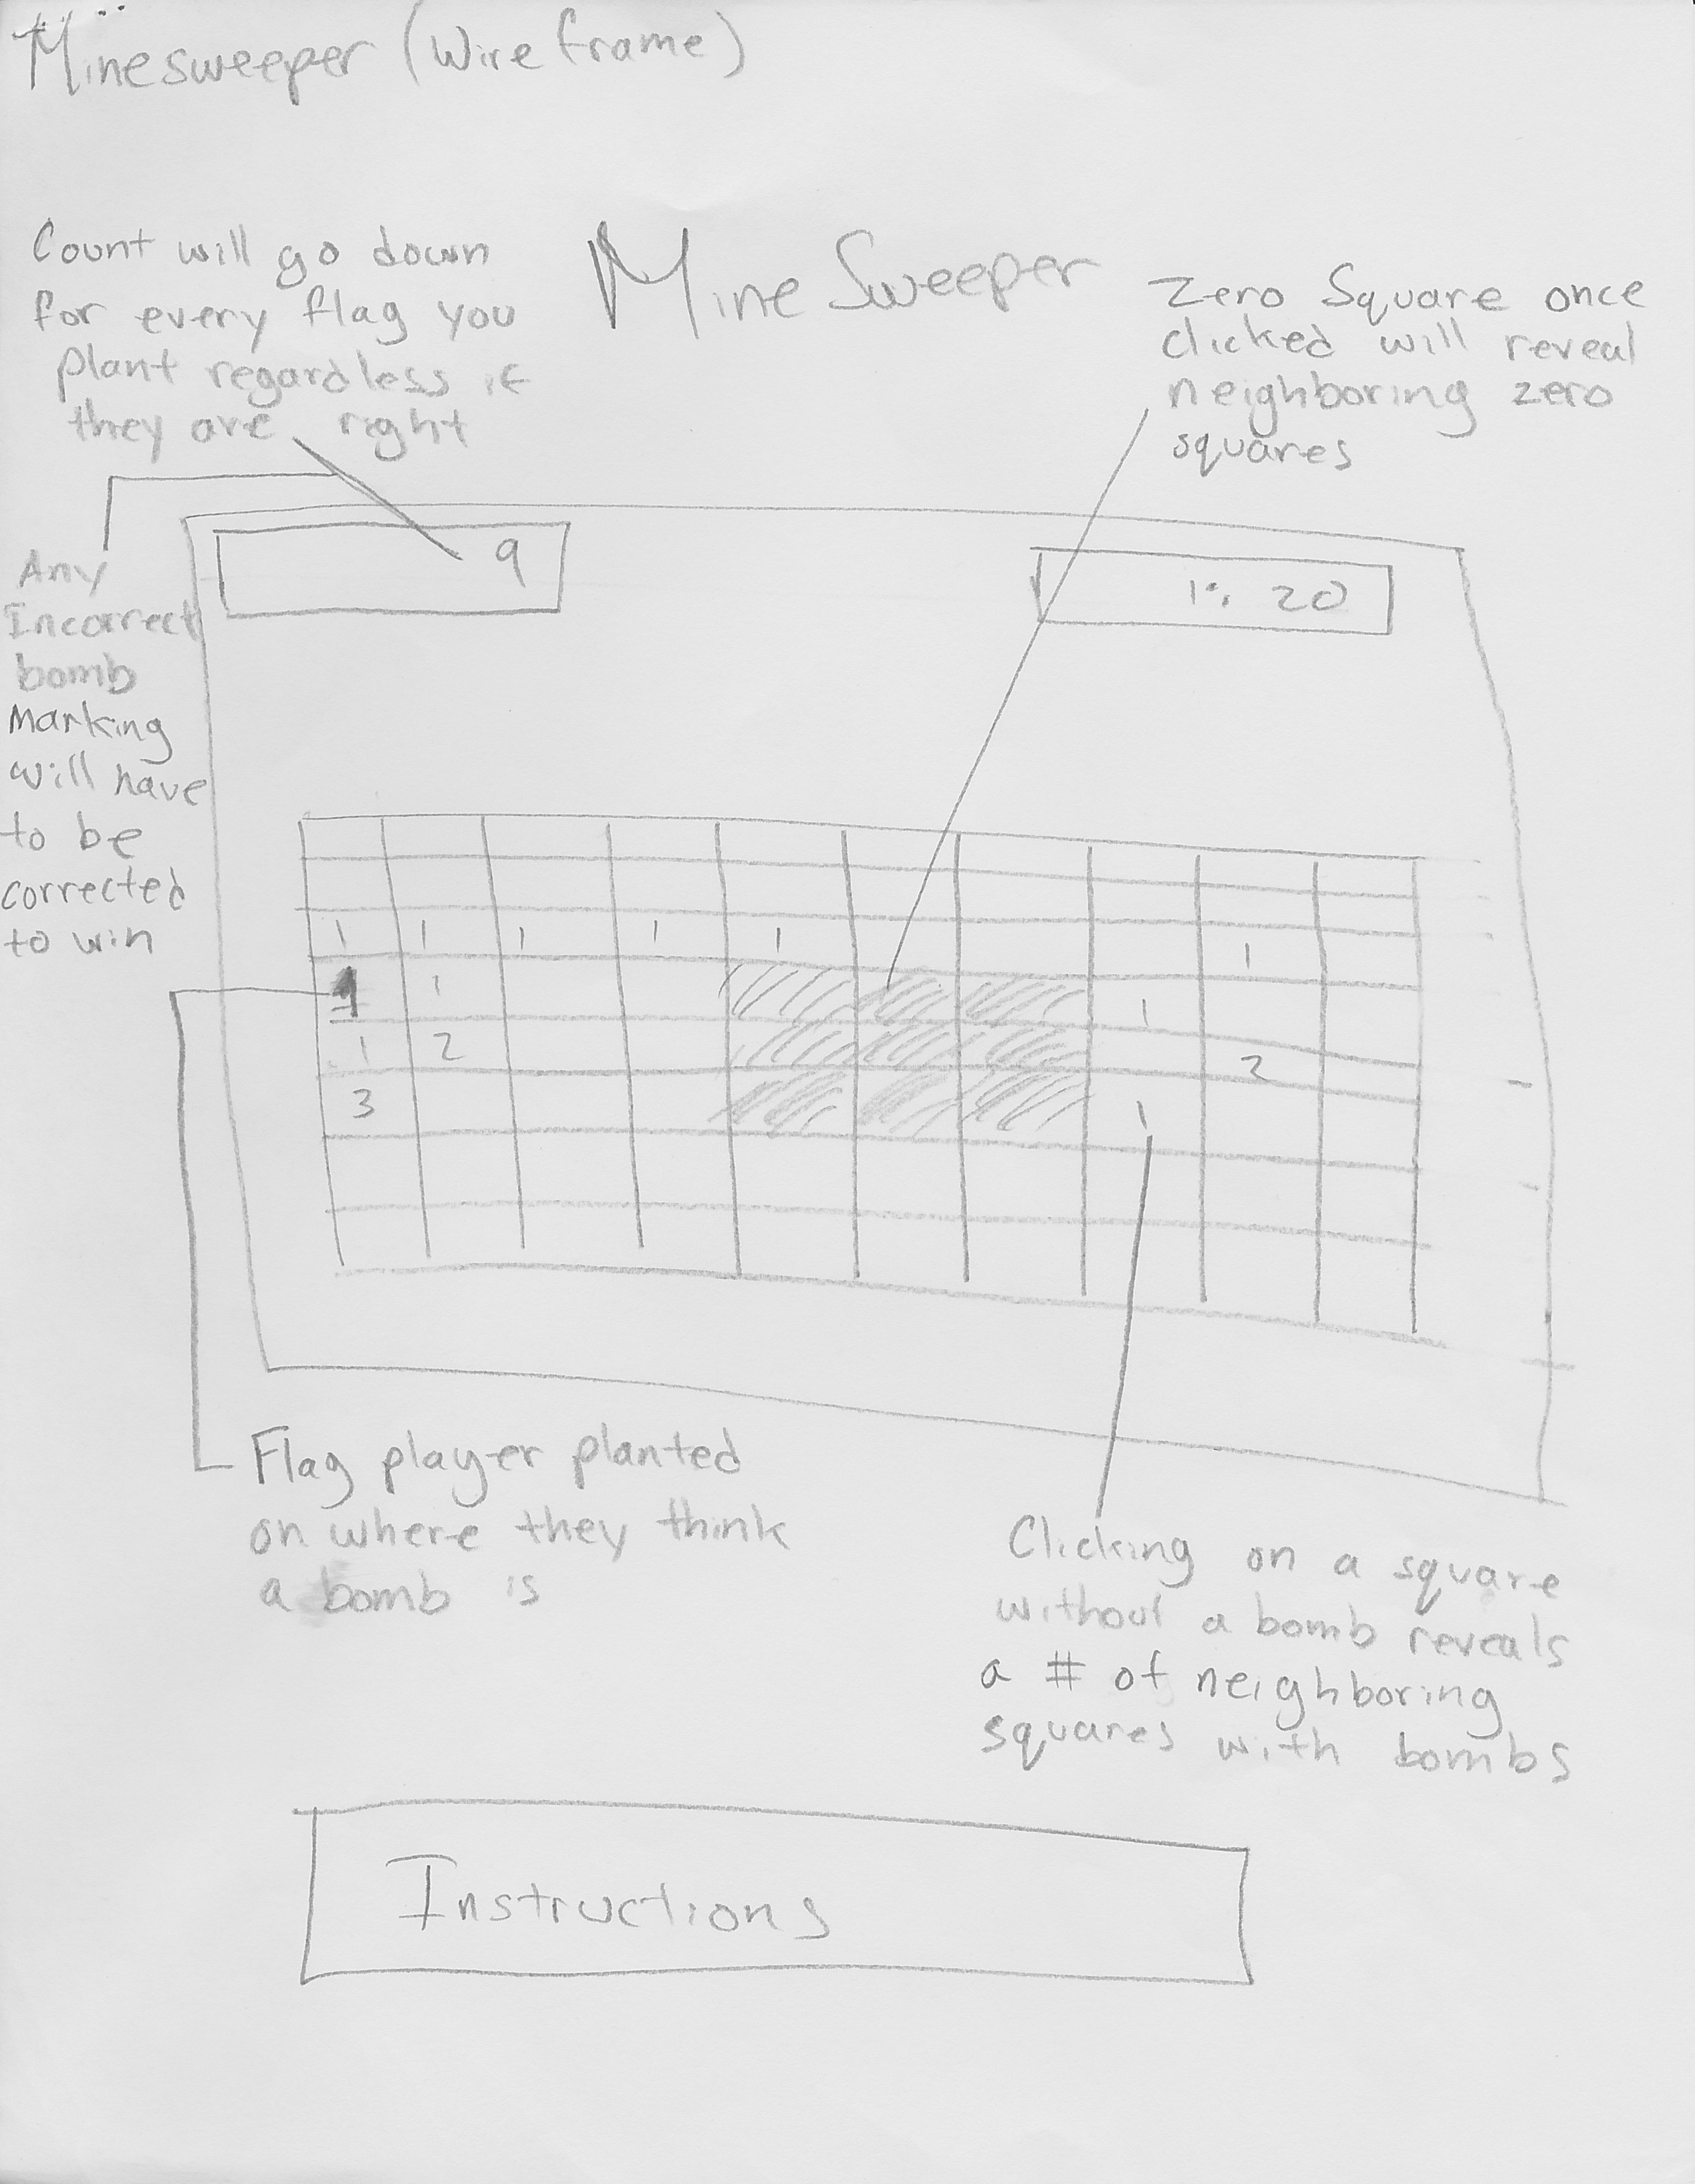 Minesweeper (Wireframe)
Mine Sweeper
Count will go down
for every flag you
plant regardless if
they are right
Zero Square once
clicked will reveal
neighboring zero
squares
Any
Incorrect
bomb
Marking
will have
to be
corrected
to win
9
1: 20
1 1 1 1 1 1
1 1
1 2 2
3 1
Flag player planted
on where they think
a bomb is
Clicking on a square
without a bomb reveals
a # of neighboring
squares with bombs
Instructions